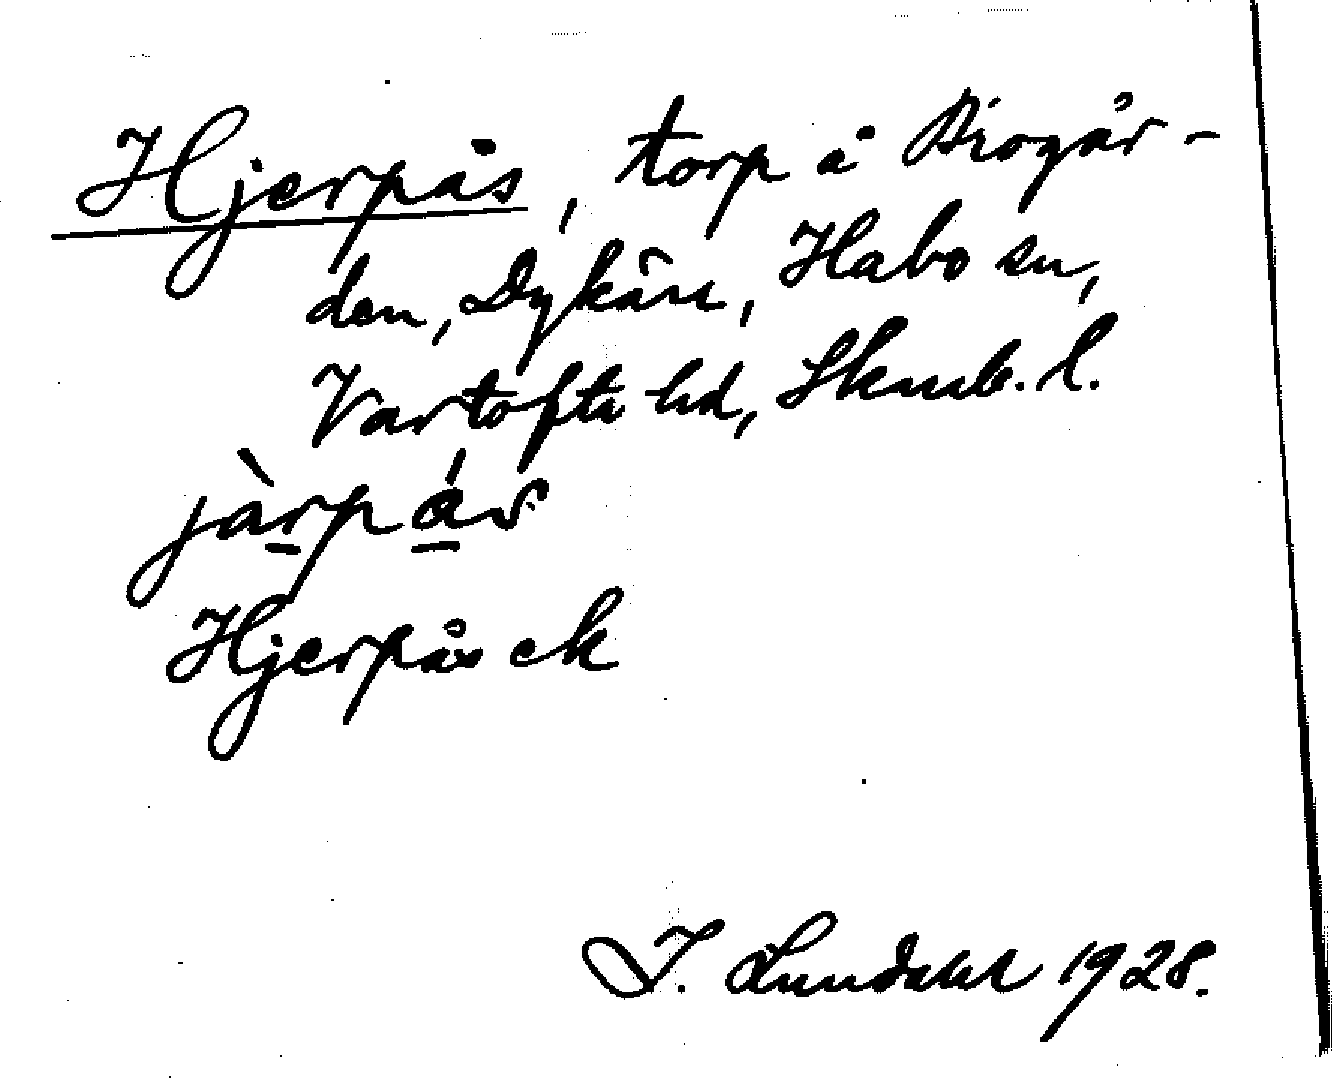 Hjerpås, torp å Brogår-
den, Dykärr, Habo sn,
Vartofta hd, Skarab. l.
jàrpás
Hjerpås ek
I. Lundahl 1928.